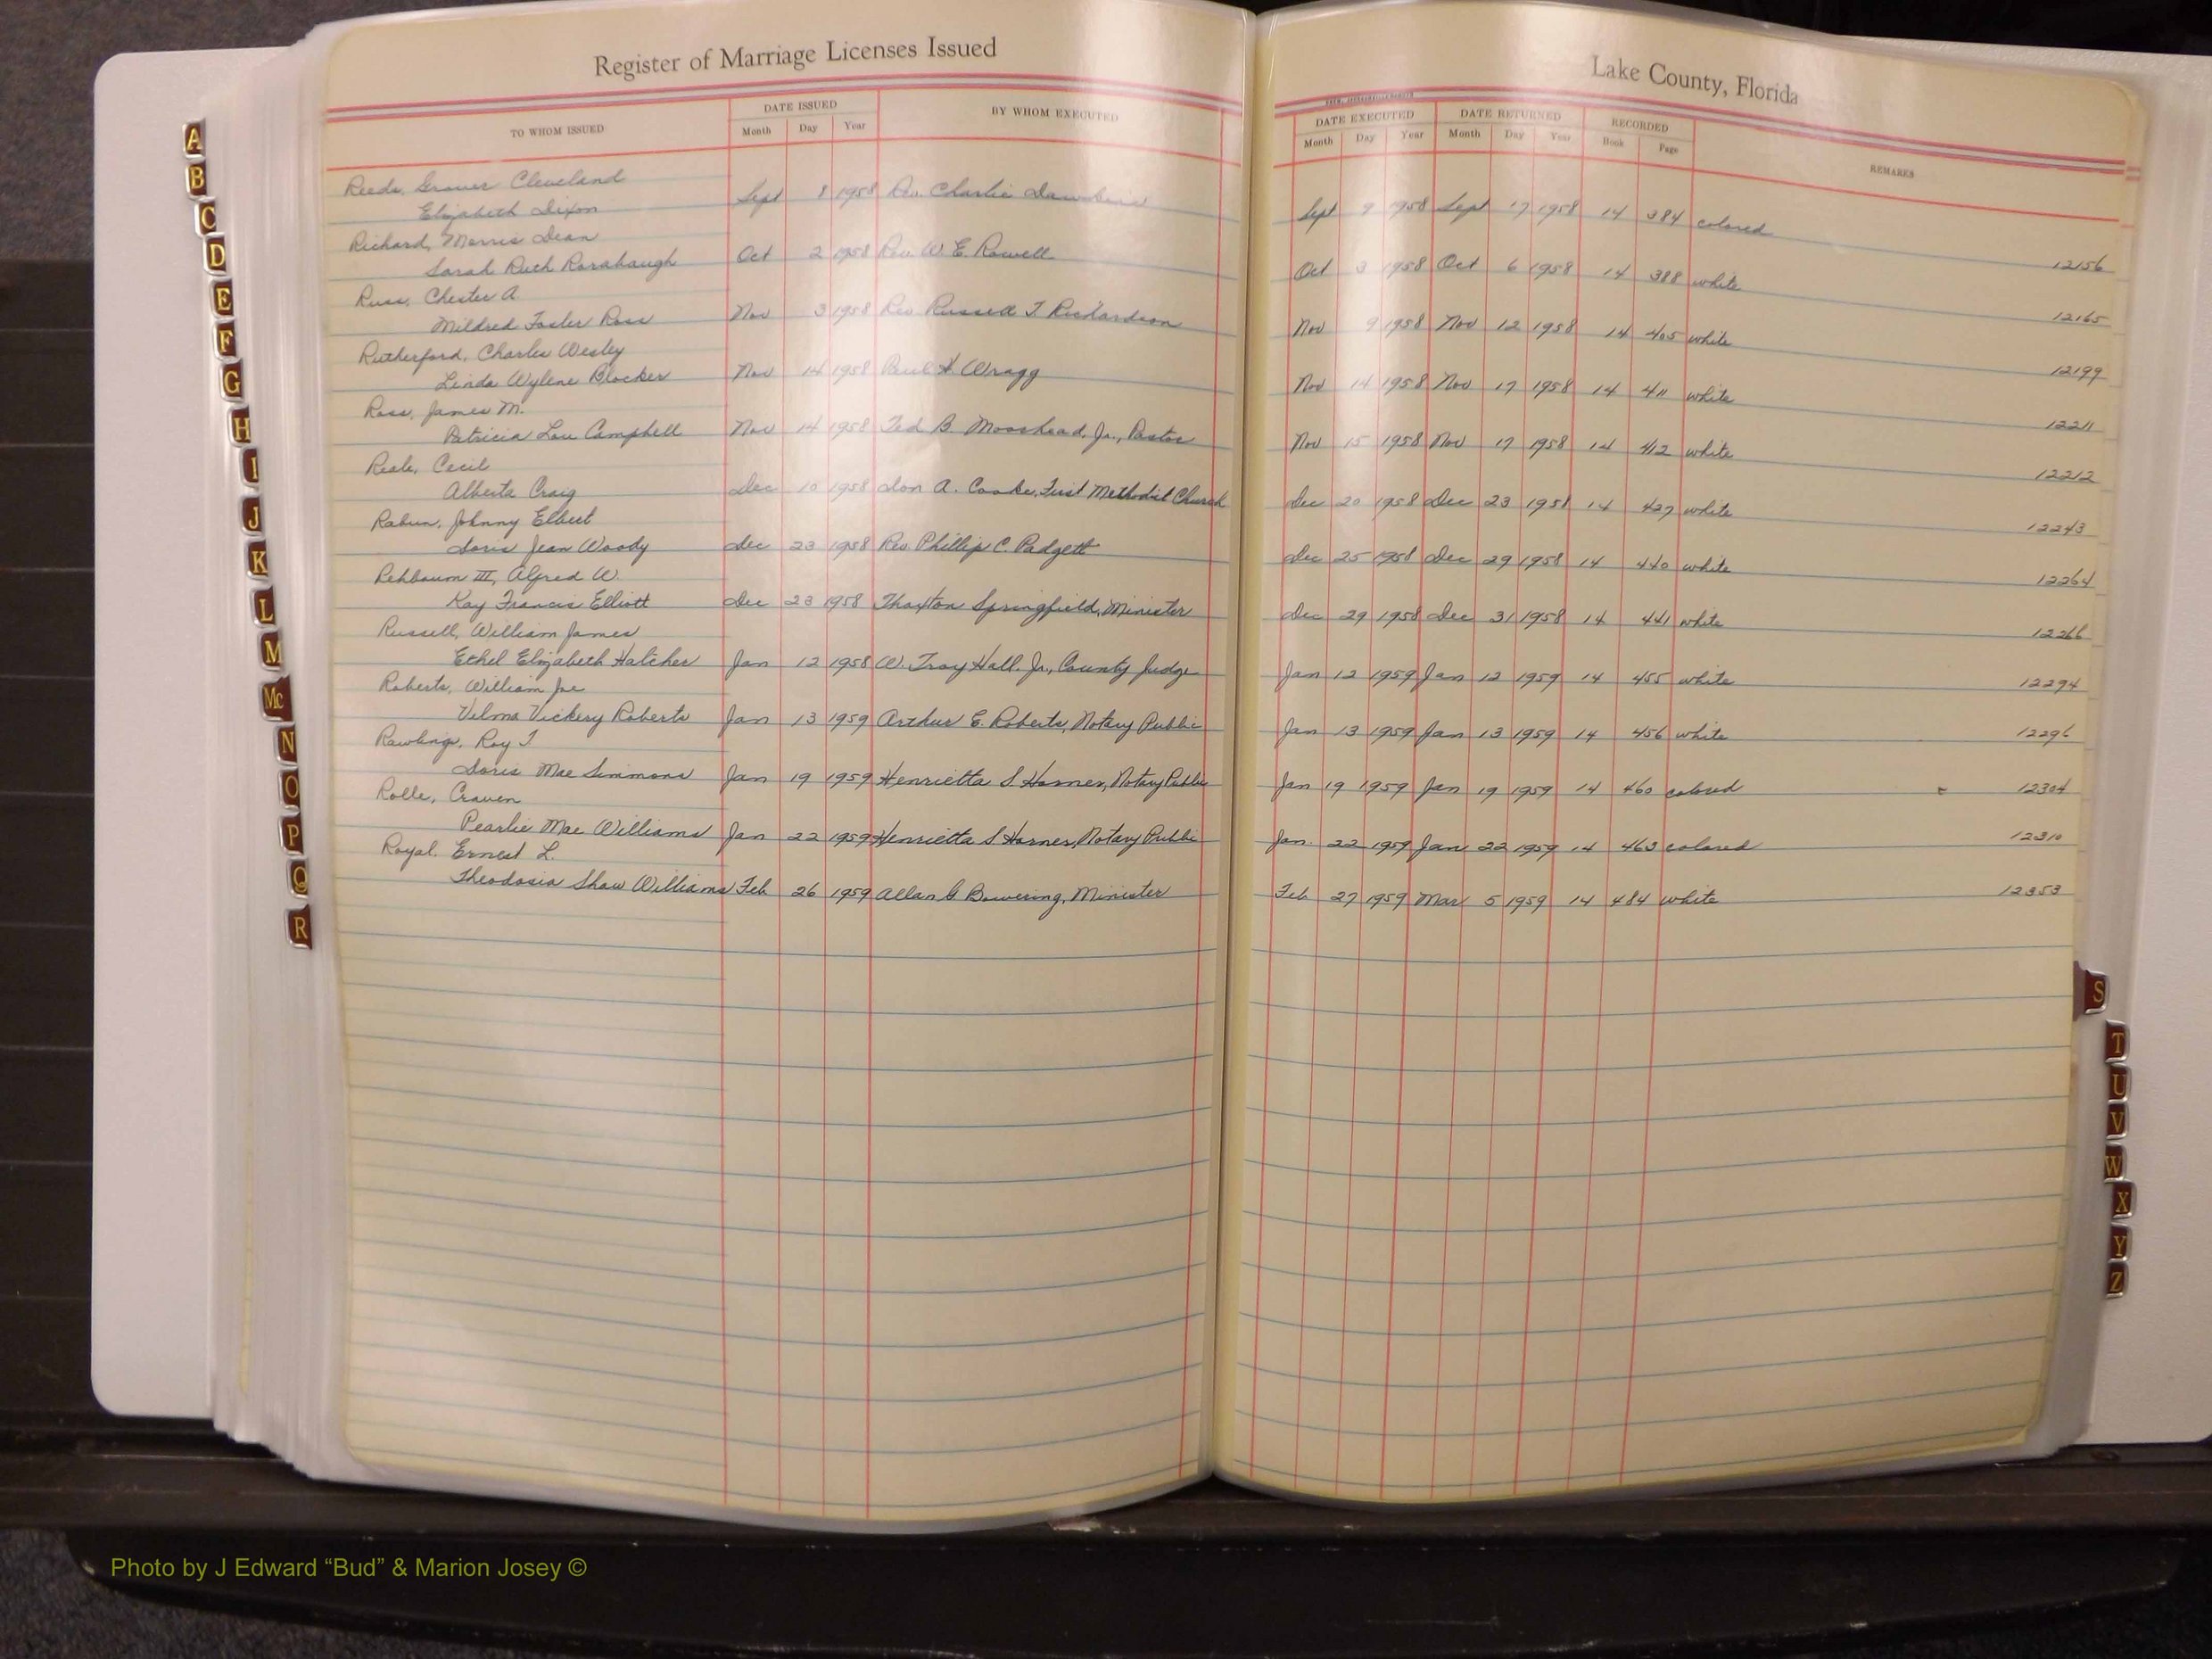 Register of Marriage Licenses Issued
Lake County, Florida
TO WHOM ISSUED DATE ISSUED BY WHOM EXECUTED DATE EXECUTED DATE RETURNED RECORDED REMARKS
Month Day Year Month Day Year Month Day Year Book Page
Reeds, Grover Cleveland
Elizabeth Dixon Sept 8 1958 Rev. Charlie Sept 9 1958 Sept 17 1958 14 384 colored 12156
Richard, Morris Dean
Sarah Ruth Rorabaugh Oct 2 1958 Rev. W. E. Rowell Oct 3 1958 Oct 6 1958 14 388 white 12165
Russ, Chester A.
Mildred Foster Ross Nov 3 1958 Rev Russell T Richardson Nov 9 1958 Nov 12 1958 14 405 white 12199
Rutherford, Charles Wesley
Linda Wylene Blocker Nov 14 1958 Paul H. Wragg Nov 14 1958 Nov 17 1958 14 411 white 12211
Ross, James M.
Patricia Lou Campbell Nov 14 1958 Ted B Moorhead, Jr., Pastor Nov 15 1958 Nov 17 1958 14 412 white 12212
Cecil
Alberta Craig Dec 10 1958 Don A. Cooke, First Methodist Church Dec 20 1958 Dec 23 1958 14 427 white 12243
Rabun, Johnny Elbert
Doris Jean Woody Dec 23 1958 Rev. Phillip C. Padgett Dec 25 1958 Dec 29 1958 14 440 white 12264
Rehbaum III, Alfred W.
Kay Francis Elliott Dec 23 1958 Thaxton Springfield, Minister Dec 29 1958 Dec 31 1958 14 441 white 12266
Russell, William James
Ethel Elizabeth Hatcher Jan 12 1958 W. Troy Hall, Jr., County Judge Jan 12 1959 Jan 12 1959 14 455 white 12294
Roberts, William Joe
Velma Vickery Roberts Jan 13 1959 Arthur E. Roberts, Notary Public Jan 13 1959 Jan 13 1959 14 456 white 12296
Rawlings, Roy J
Doris Mae Simmons Jan 19 1959 Henrietta S Horner, Notary Public Jan 19 1959 Jan 19 1959 14 460 colored 12304
Rolle, Craven
Pearlie Mae Williams Jan 22 1959 Henrietta S Horner, Notary Public Jan. 22 1959 Jan 22 1959 14 463 colored 12310
Royal, Ernest L.
Theodosia Shaw Williams Feb 26 1959 Allan G Bowering, Minister Feb 27 1959 Mar 5 1959 14 484 white 12353
A
B
C
D
E
F
G
H
I
J
K
L
M
Mc
N
O
P
Q
R
S
T
U
V
W
X
Y
Z
Photo by J Edward “Bud” & Marion Josey ©